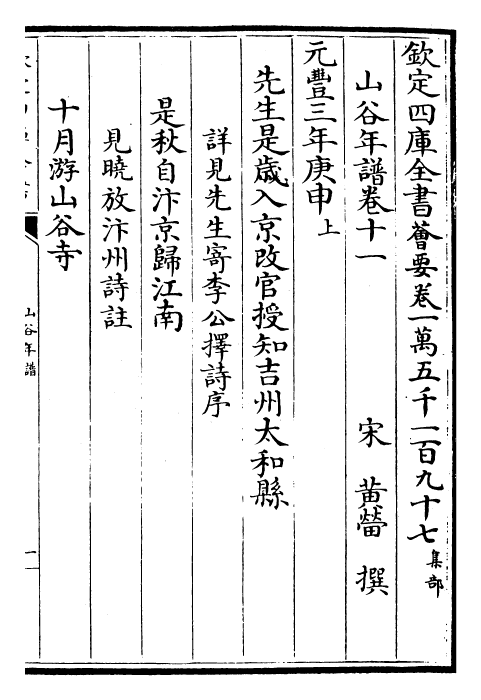 欽定四庫全書薈要卷一萬五千一百九十七集部
山谷年譜卷十一
宋 黄㽦 撰
元豐三年庚申上
先生是歳入京改官授知吉州太和縣
詳見先生寄李公擇詩序
是秋自汴京歸江南
見曉放汴州詩註
十月游山谷寺
山谷年譜
一